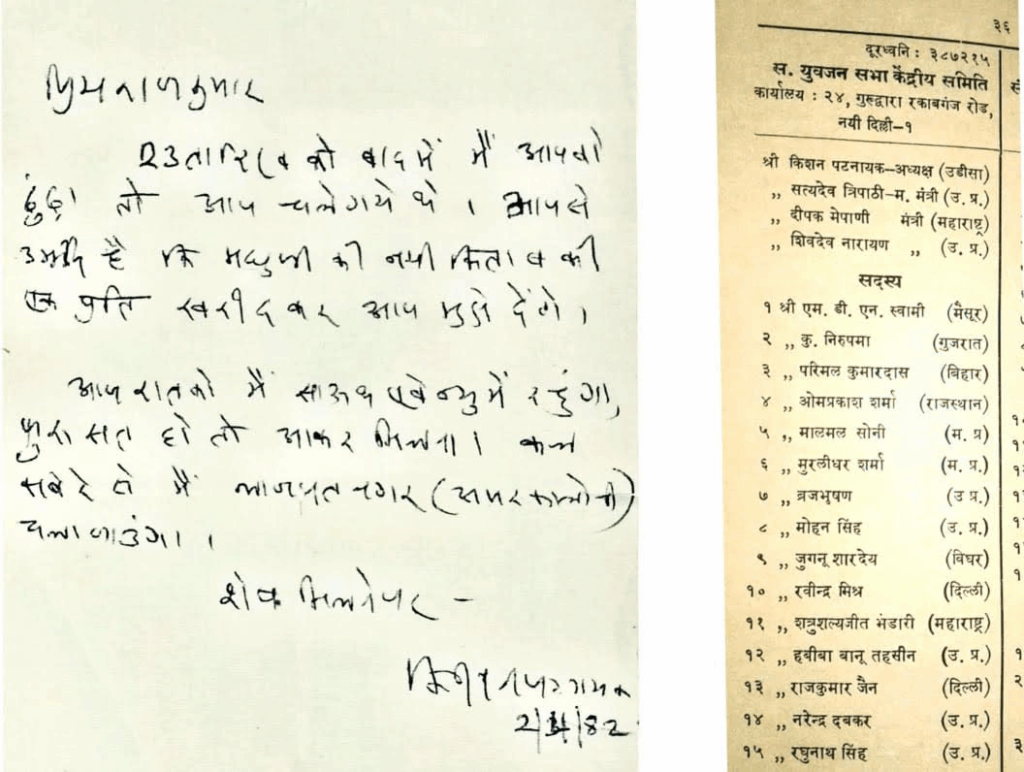 प्रिय राजकुमार
23 तारिख को बाद में मैं आपको
ढुंढ़ा तो आप चले गये थे । आपसे
उम्मीद है कि मधुजी की नयी किताब की
एक प्रति खरीद कर आप मुझे देंगे ।
आज रात को मैं साऊथ एवेन्यु में रहुंगा,
फुरसत हो तो आकर मिलना । कल
सबेरे से मैं लाजपत नगर (अमर कालोनी)
चला जाउंगा । ।
शेष मिलने पर –
किशन पटनायक
2/4/82
३६
दूरध्वनि : ३८७२१५
स. युवजन सभा केंद्रीय समिति
कार्यालय : २४, गुरुद्वारा रकाबगंज रोड,
नयी दिल्ली-१
श्री किशन पटनायक-अध्यक्ष (उडीसा)
,, सत्यदेव त्रिपाठी-म. मंत्री (उ. प्र.)
,, दीपक मेपाणी मंत्री (महाराष्ट्र)
,, शिवदेव नारायण ,, (उ. प्र.)
सदस्य
१ श्री एम. डी. एन. स्वामी (मैसूर)
२ ,, कु. निरुपमा (गुजरात)
३ ,, परिमल कुमारदास (बिहार)
४ ,, ओमप्रकाश शर्मा (राजस्थान)
५ ,, मालमल सोनी (म. प्र)
६ ,, मुरलीधर शर्मा (म. प्र.)
७ ,, व्रजभुषण (उ प्र.)
८ ,, मोहन सिंह (उ. प्र.)
९ ,, जुगनू शारदेय (विघर)
१० ,, रवीन्द्र मिश्र (दिल्ली)
११ ,, शत्रुशल्यजीत भंडारी (महाराष्ट्र)
१२ ,, हबीबा बानू तहसीन (उ. प्र.)
१३ ,, राजकुमार जैन (दिल्ली)
१४ ,, नरेन्द्र दबकर (उ. प्र.)
१५ ,, रघुनाथ सिंह (उ. प्र.)